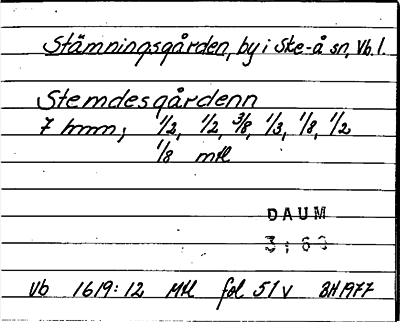 Stämningsgården, by i Ske-å sn, Vb. l.
Stemdesgårdenn
7 hmn, 1/2, 1/2, 3/8, 1/3, 1/8, 1/2
1/8 mtl
DAUM
Vb 1619:12 Mtl fol 51v BH 1977